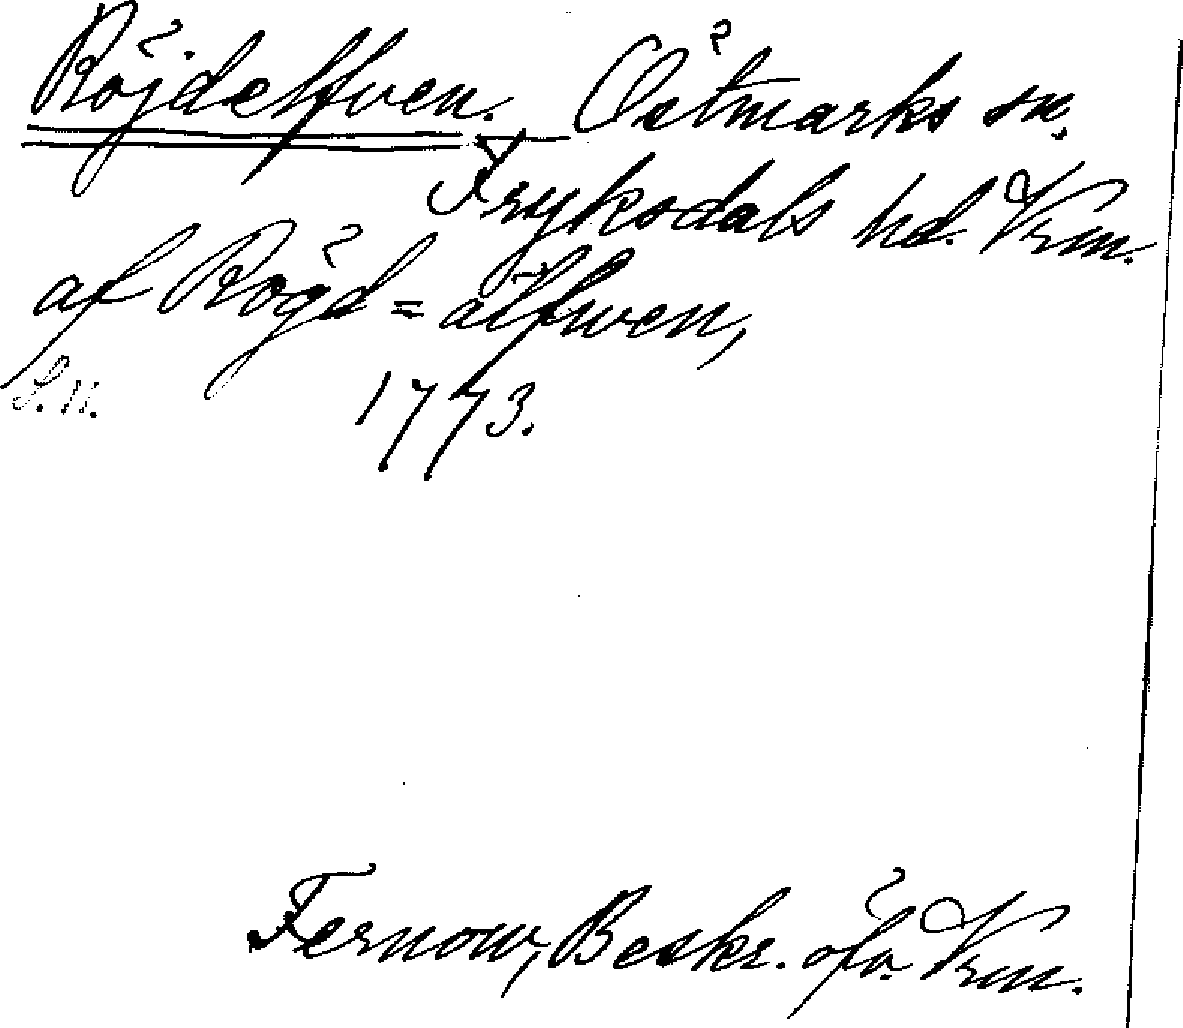 Röjdelfven. Östmarks sn.
Fryksdals hd. Vrm.
af Rögd=älfwen,
S.N.
1773.
Fernow, Beskr. öfv. Vrm.